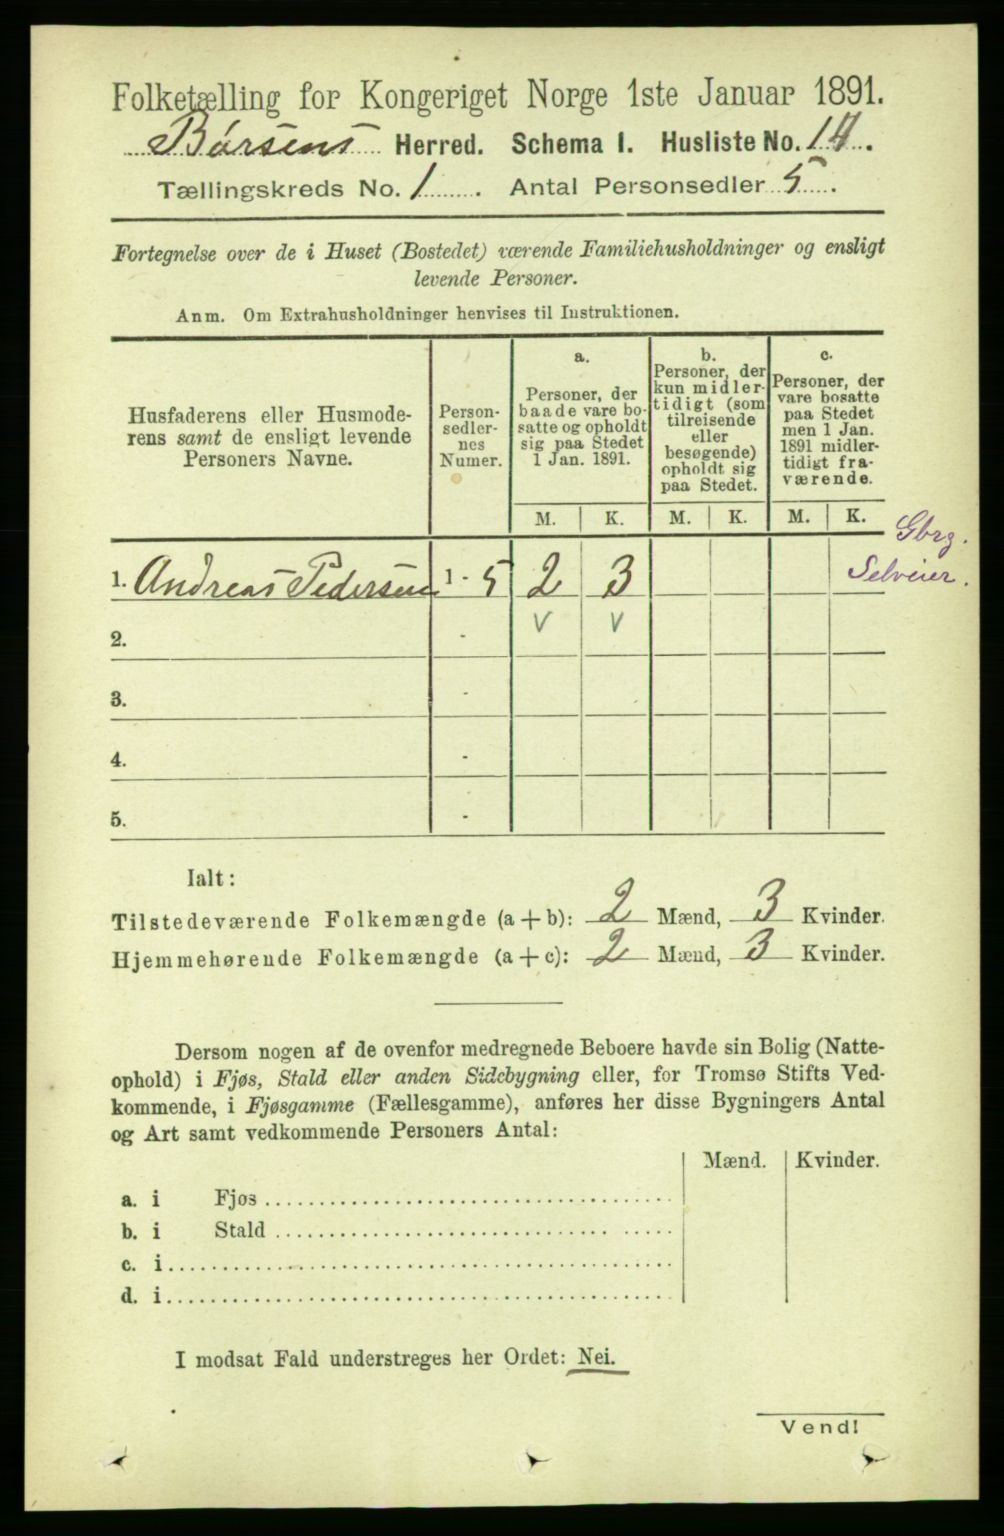 Folketælling for Kongeriget Norge 1ste Januar 1891.
Børsens Herred. Schema I. Husliste No. 14.
Tællingskreds No. 1. Antal Personsedler 5.
Fortegnelse over de i Huset (Bostedet) værende Familiehusholdninger og ensligt
levende Personer.
Anm. Om Extrahusholdninger henvises til Instruktionen.
Husfaderens eller Husmode-
rens samt de ensligt levende
Personers Navne.
Person-
sedler-
nes
Numer.
a.
Personer, der
baade vare bo-
satte og opholdt
sig paa Stedet
1 Jan. 1891.
b.
Personer, der
kun midler-
tidigt (som
tilreisende
eller
besøgende)
opholdt sig
paa Stedet.
c.
Personer, der
vare bosatte
paa Stedet
men 1 Jan.
1891 midler-
tidigt fra-
værende.
M. K. M. K. M. K.
Gbrg.
1. Andreas Pedersen 1 - 5 2 3 Selveier.
2. - v v
3. -
4. -
5. -
Ialt:
Tilstedeværende Folkemængde (a+b): 2 Mænd, 3 Kvinder.
Hjemmehørende Folkemængde (a+c): 2 Mænd, 3 Kvinder.
Dersom nogen af de ovenfor medregnede Beboere havde sin Bolig (Natte-
ophold) i Fjøs, Stald eller anden Sidebygning eller, for Tromsø Stifts Ved-
kommende, i Fjøsgamme (Fællesgamme), anføres her disse Bygningers Antal
og Art samt vedkommende Personers Antal:
Mænd. Kvinder.
a. i Fjøs
b. i Stald
c. i
d. i
I modsat Fald understreges her Ordet: Nei.
Vend!